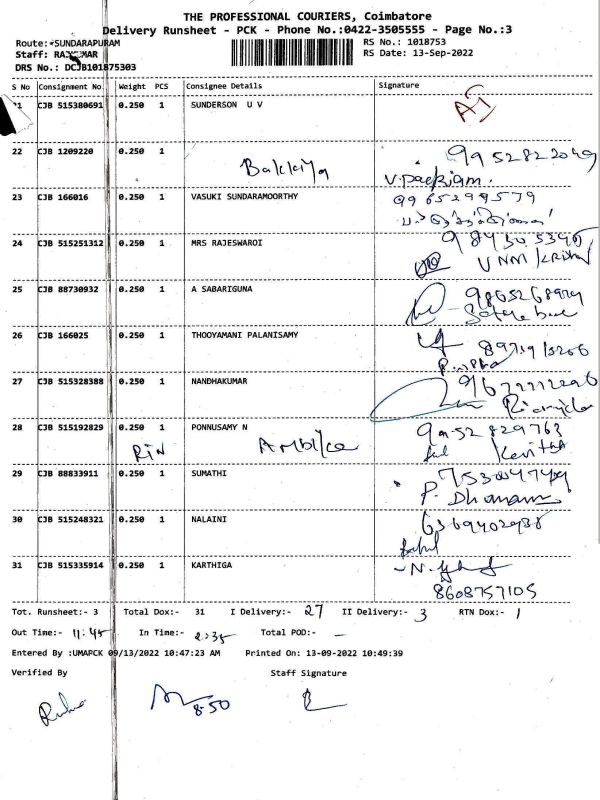 THE PROFESSIONAL COURIERS, Coimbatore
Delivery Runsheet - PCK - Phone No.:0422-3505555 - Page No.:3
Route: SUNDARAPURAM RS No.: 1018753
Staff: RAJKUMAR RS Date: 13-Sep-2022
DRS No.: DCJB101875303
S No Consignment No. Weight PCS Consignee Details Signature
CJB 515380691 0.250 1 SUNDERSON U V
22 CJB 1209220 0.250 1 9952822049
V.packiam.
23 CJB 166016 0.250 1 VASUKI SUNDARAMOORTHY 9965299579
24 CJB 515251312 0.250 1 MRS RAJESWAROI
25 CJB 88730932 0.250 1 A SABARIGUNA
26 CJB 166025 0.250 1 THOOYAMANI PALANISAMY
27 CJB 515328388 0.250 1 NANDHAKUMAR
28 CJB 515192829 0.250 1 PONNUSAMY N 9952829763
RIN
29 CJB 88833911 0.250 1 SUMATHI
P. Dhanam
30 CJB 515248321 0.250 1 NALAINI
31 CJB 515335914 0.250 1 KARTHIGA
8608757105
Tot. Runsheet:- 3 Total Dox:- 31 I Delivery:- 27 II Delivery:- 3 RTN Dox:- 1
Out Time:- 11:45 In Time:- 2:35 Total POD:- -
Entered By :UMAPCK 09/13/2022 10:47:23 AM Printed On: 13-09-2022 10:49:39
Verified By Staff Signature
8-50